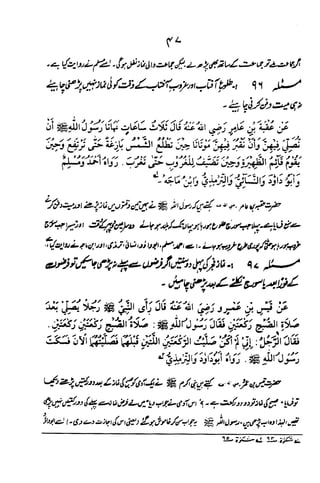 ۴۷
اگر جماعت ہو تو جماعت کے ساتھ بھی پڑھ لے۔ لیکن جماعت والی نماز نفل ہوگی۔ اسے مسلم نے روایت کیا ہے۔
مسئلہ ۹۶ :۔ طلوع آفتاب اور غروب آفتاب کے وقت کوئی نماز نہیں پڑھنی چاہئے
نہ ہی میت دفن کرنی چاہئے۔
عَنْ عُقْبَةَ بْنِ عَامِرٍ رَضِيَ اللهُ عَنْهُ قَالَ ثَلَاثُ سَاعَاتٍ نَهَانَا رَسُولُ اللهِ ﷺ أَنْ
نُصَلِّيَ فِيهِنَّ وَأَنْ نَقْبُرَ فِيهِنَّ مَوْتَانَا حِينَ تَطْلُعُ الشَّمْسُ بَازِغَةً حَتَّى تَرْتَفِعَ وَحِينَ
يَقُومُ قَائِمُ الظَّهِيرَةِ وَحِينَ تَضَيَّفُ لِلْغُرُوبِ حَتَّى تَغْرُبَ . رَوَاهُ أَحْمَدُ وَمُسْلِمٌ
وَأَبُو دَاوُدَ وَالنَّسَائِيُّ وَالتِّرْمِذِيُّ وَابْنُ مَاجَهْ .
حضرت عقبہ بن عامر کہتے ہیں کہ رسول اللہ ﷺ نے ہمیں تین وقتوں میں نماز پڑھنے اور میت دفن کرنے
سے منع فرمایا ہے۔ پہلا جب سورج طلوع ہو رہا ہو یہاں تک کہ بلند ہو جائے
مسئلہ ۹۷ :۔ نماز فجر کی پہلی دو سنتیں اگر فرضوں سے پہلے نہ پڑھی جا سکیں تو فرضوں
کے فوراً بعد یا سورج نکلنے کے بعد پڑھنی چاہئیں۔
عَنْ قَيْسِ بْنِ عَمْرٍو رَضِيَ اللهُ عَنْهُ قَالَ رَأَى النَّبِيُّ ﷺ رَجُلًا يُصَلِّي بَعْدَ
صَلَاةِ الصُّبْحِ رَكْعَتَيْنِ فَقَالَ رَسُولُ اللهِ ﷺ : صَلَاةُ الصُّبْحِ رَكْعَتَيْنِ رَكْعَتَيْنِ .
فَقَالَ الرَّجُلُ : إِنِّي لَمْ أَكُنْ صَلَّيْتُ الرَّكْعَتَيْنِ اللَّتَيْنِ قَبْلَهُمَا فَصَلَّيْتُهُمَا الْآنَ فَسَكَتَ
رَسُولُ اللهِ ﷺ . رَوَاهُ أَبُو دَاوُدَ وَالتِّرْمِذِيُّ
حضرت قیس بن عمرو کہتے ہیں نبی اکرم ﷺ نے ایک آدمی کو صبح کی نماز کے بعد دو رکعتیں پڑھتے دیکھا
تو فرمایا صبح کی نماز تو دو دو رکعت ہے۔ اس آدمی نے جواب دیا میں نے فرض نماز سے پہلے کی دو رکعتیں نہیں پڑھی
تھیں لہذا وہ اب پڑھی ہیں۔ رسول اللہ ﷺ یہ جواب سن کر خاموش ہو گئے